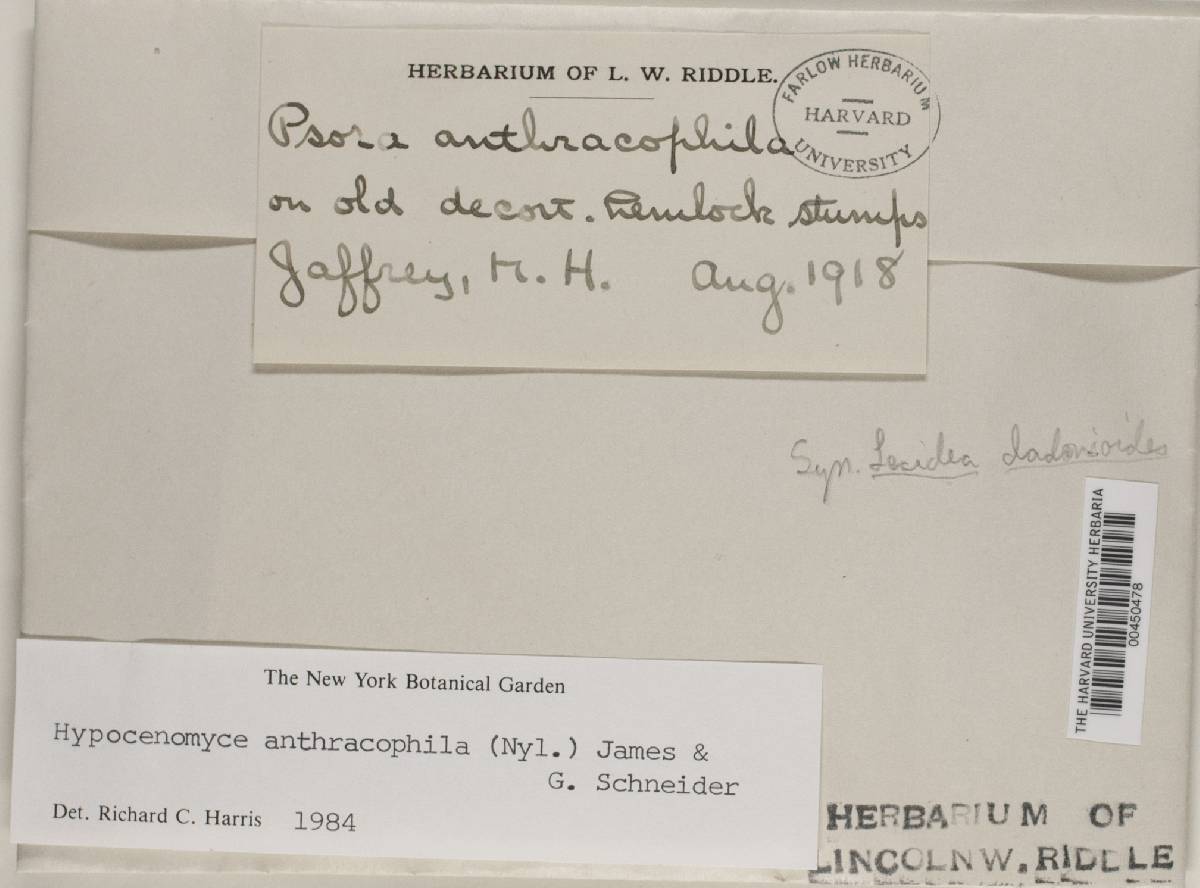 HERBARIUM OF L. W. RIDDLE.
FARLOW HERBARIUM
HARVARD
UNIVERSITY
Psora anthracophila
on old decort. hemlock stumps
Jaffrey, N. H. Aug. 1918
Syn. Lecidea cladonioides
THE HARVARD UNIVERSITY HERBARIA
00450478
The New York Botanical Garden
Hypocenomyce anthracophila (Nyl.) James &
G. Schneider
Det. Richard C. Harris 1984
HERBARIUM OF
LINCOLN W. RIDDLE